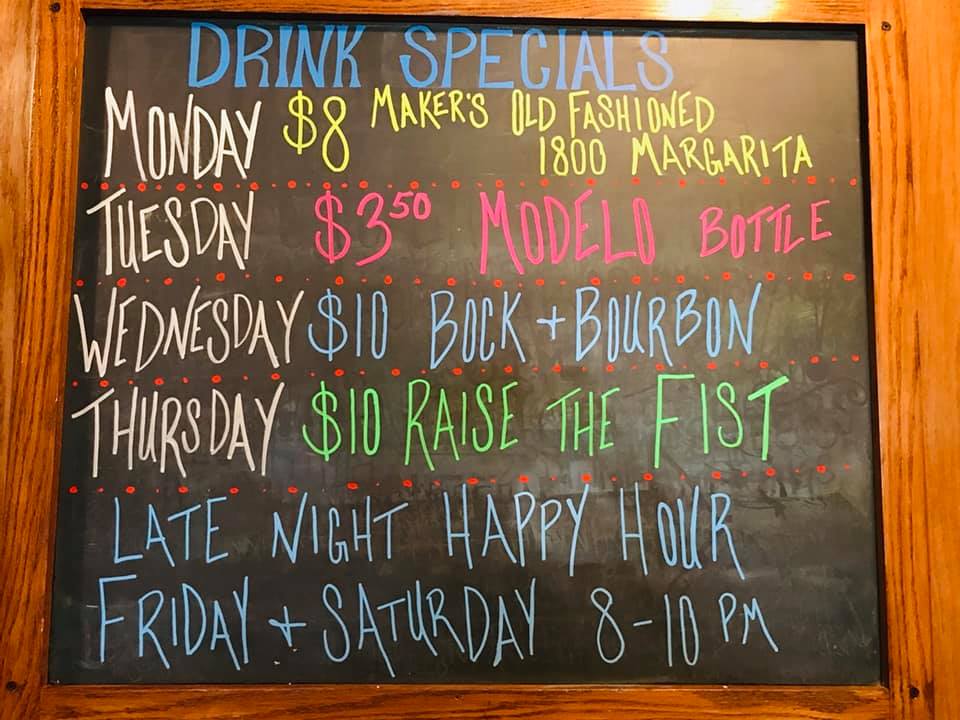 DRINK SPECIALS
MONDAY $8 MAKER'S OLD FASHIONED
1800 MARGARITA
TUESDAY $3.50 MODELO BOTTLE
WEDNESDAY $10 BOCK + BOURBON
THURSDAY $10 RAISE THE FIST
LATE NIGHT HAPPY HOUR
FRIDAY + SATURDAY 8-10 PM